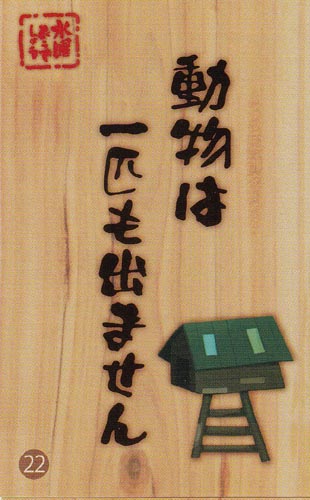 水曜
どうでしょう
動物は
一匹も出ません
22